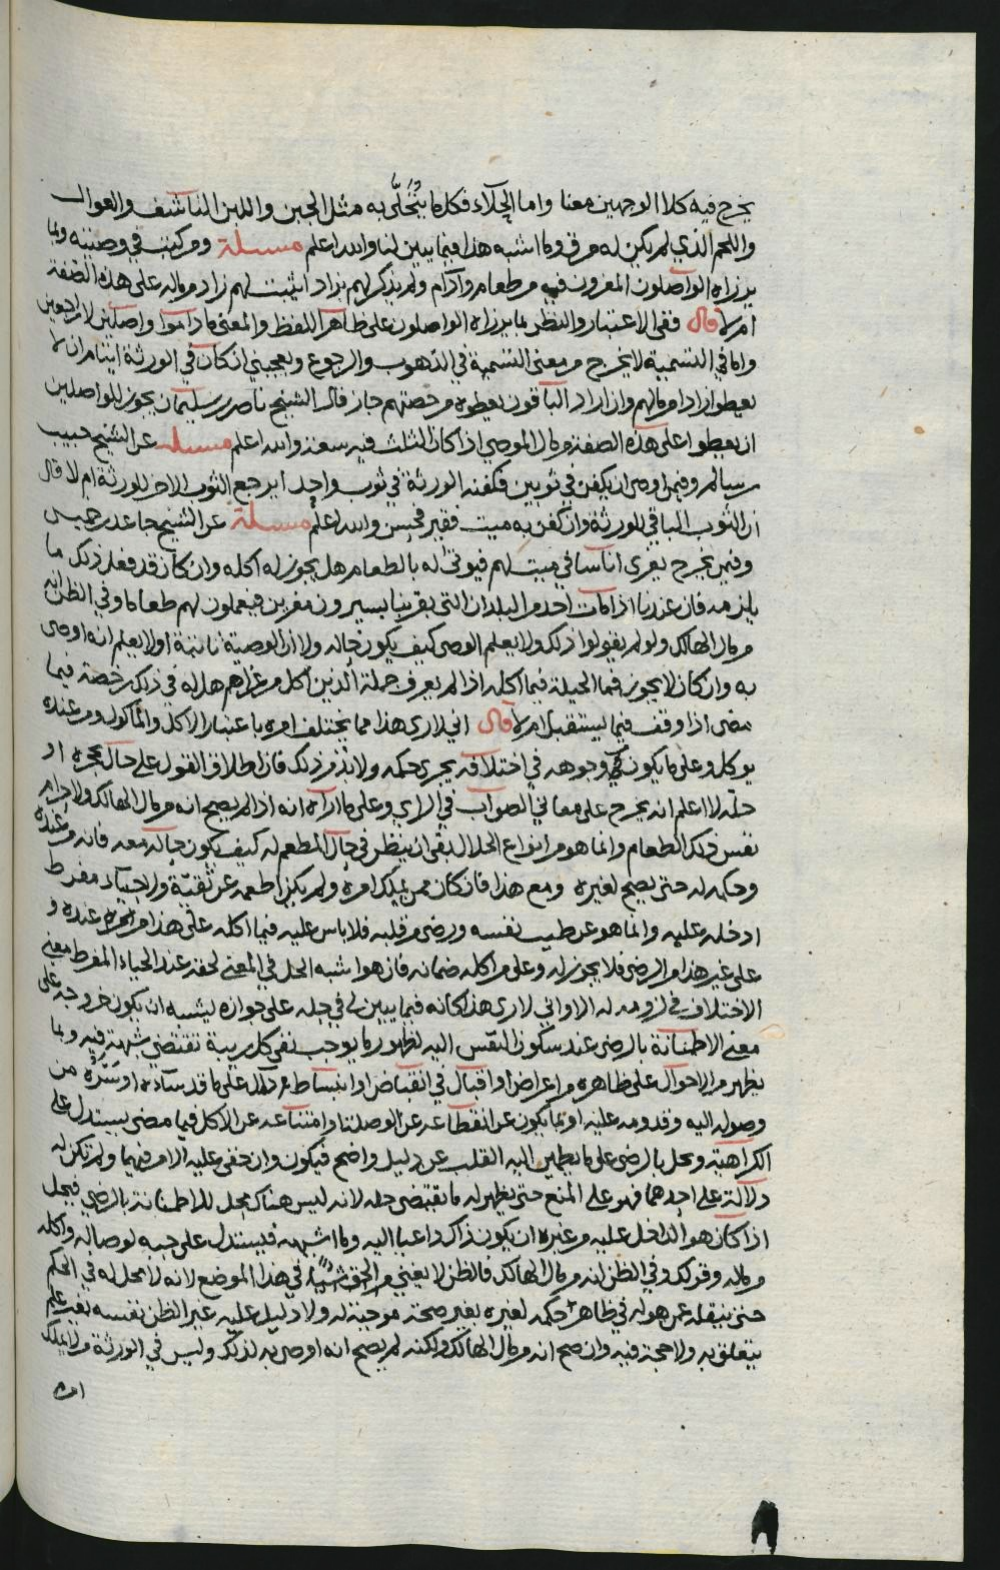 يخرج فيه كلا الوجهين معنا واما الحِلّاء فكل ما يُتَحلَّى به مثل الجبن واللبن الناشف والعوال
واللحم الذي لم يكن له مرق وما اشبه هذا فيما يبين لنا والله اعلم مسئلة ومن كتب في وصيته وبما
يرزاه الواصلون المعزون فيه من طعام وآدام ولم يذكر لهم بزاد ايثبت لهم زاد من ماله على هذه الصفة
ام لا قال ففي الاعتبار والنظر بما يرزاه الواصلون على ظاهر اللفظ والمعنى ما داموا واصلين لا راجعين
واما في التسمية لا يخرج من معنى التسمية في الذهوب والرجوع ويعجبني ان كان في الورثة ايتام ان لا
يعطوا زادا من مالهم وان اراد الباقون يعطوه من حصتهم جاز قال الشيخ ناصر بن سليمان يجوز للواصلين
ان يعطوا على هذه الصفة من مال الموصي اذا كان الثلث فيه سعة والله اعلم مسئلة عن الشيخ حبيب
بن سالم وفيمن اوصى ان يكفن في ثوبين فكفنه الورثة في ثوب واحد أيرجع الثوب الاخر للورثة ام لا قال
ان الثوب الباقي للورثة وان كفن به ميت فقير فحسن والله اعلم مسئلة عن الشيخ جاعد بن خميس
وفيمن يخرج يعزي اناسا في ميت لهم فيوتى له بالطعام هل يجوز له اكله وان كان قد فعل ذلك ما
يلزمه فان عندنا اذا مات احد من البلدان التي بقربنا يسيرون معزين فيعملون لهم طعاما وفي الظن انه
من مال الهالك ولو لم يقولوا ذلك ولا يعلم الوصي كيف يكون حاله ولا ان الوصية ثابتة او لا يعلم انه اوصى
به وان كان لا يجوز فما الحيلة فيما اكله اذا لم يعرف جملة الذين اكل من عزاهم هل له في ذلك رخصة فيما
مضى اذا وقف فيما يستقبل ام لا قال اني لارى هذا مما يختلف امره باعتبار الاكل والماكول ومن عنده
يوكل وعلى ما يكون وجوهه في اختلافه يجري حكمه ولا بد من ذلك فان اطلاق القول على حال بحجره او
حله لا اعلم انه يخرج على معاني الصواب في الراي وعلى ما اراه انه اذا لم يصح انه من مال الهالك ولا حرام
نفس ذلك الطعام وانما هو من انواع الحلال بقي ان ينظر في حال المطعم له كيف يكون حاله معه فانه من عنده
وحكمه له حتى يصح لغيره ومع هذا فان كان ممن يملك امره ولم يكن اطعمه عن تقيّة ولا حياء مفرط
ادخله عليه وانما هو عن طيب نفسه ورضى من قلبه فلا باس عليه فيما اكله على هذا من عنده و
على غير هذا من الرضى فلا يجوز له وعلى من اكله ضمانه فان هو اشبه الحل في المعنى لحقه عند الحياء المفرط معنى
الاختلاف في لزومه له الا واني لارى هذا كانه فيما يبين لي في حله على جوازه ليشبه ان يكون خروجه على
معنى الاطمانة بالرضى عند سكون النفس اليه لظهور ما يوجب نفي كل ريبة تقتضي شبهة فيه وبما
يظهر من الاحوال على ظاهره من اعراض او اقبال في انقباض او انبساط دلالة على ما قد ساءه او سَرّه من
وصوله اليه وقدومه عليه او بما يكون عن انقطاعه عن الوصلنا وامتناعه عن الاكل فيما مضى يستدل على
الكراهية ويحل بالرضى على ما يطمئن اليه القلب عن دليل واضح فيكون وان خفى عليه الامر فيهما ولم تكن له
دلالة على احدهما فهو على المنع حتى يظهر له ما يقتضى حله لانه ليس هناك محل للاطمانة بالرضي فيحل
اذا كان هو الداخل عليه من غيره ان يكون ذاك داعيا اليه وما اشبهه فيستدل على حبه لوصاله واكله
من ماله وقولك وفي الظن انه من مال الهالك فالظن لا يغني من الحق شيئا في هذا الموضع لانه لا محل له في الحكم
حتى ينقله عمن هو له في ظاهر حكمه لغيره بغير صحة موجبة له ولا دليل عليه غير الظن نفسه بغير علم
يتعلق به ولا حجة فيه وان صح انه من مال الهالك ولكنه لم يصح انه اوصى به لذلك وليس في الورثة من لا يملك
امره